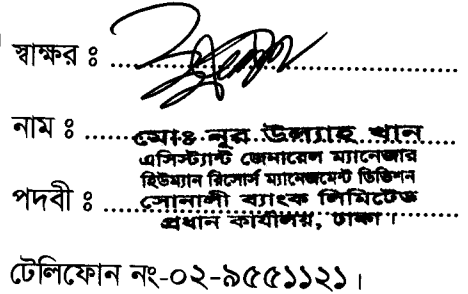 স্বাক্ষর ঃ
নাম ঃ মোঃ নূর উল্যাহ খান
এসিস্ট্যান্ট জেনারেল ম্যানেজার
হিউম্যান রিসোর্স ম্যানেজমেন্ট ডিভিশন
পদবী ঃ সোনালী ব্যাংক লিমিটেড
প্রধান কার্যালয়, ঢাকা।
টেলিফোন নং-০২-৯৫৫১১২১।